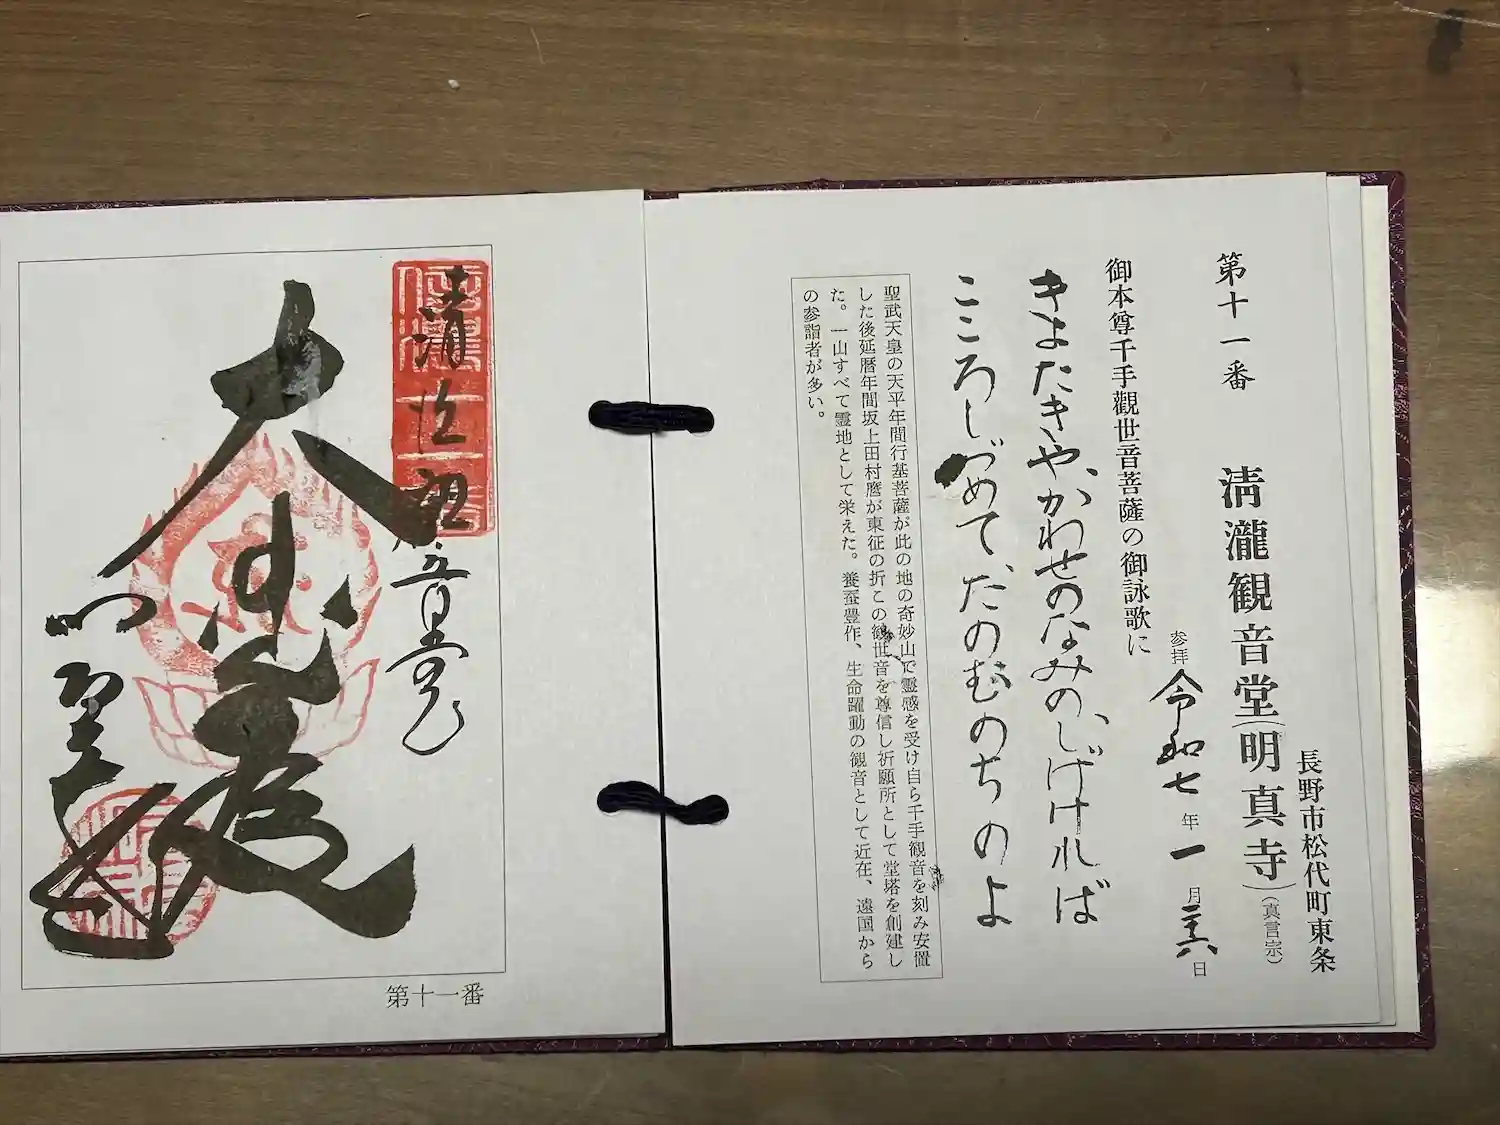 長野市松代町東条
第十一番　清瀧観音堂(明真寺)(真言宗)
参拝 令和七年一月二十六日
御本尊千手觀世音菩薩の御詠歌に
きよたきや、かわせのなみの、しげければ
こころしづめて、たのむのちのよ
聖武天皇の天平年間行基菩薩が此の地の奇妙山で霊感を受け自ら千手観音を刻み安置
した後延暦年間坂上田村麿が東征の折この観世音を尊信し祈願所として堂塔を創建し
た。一山すべて霊地として栄えた。養蚕豊作、生命躍動の観音として近在、遠国から
の参詣者が多い。
大悲
第十一番